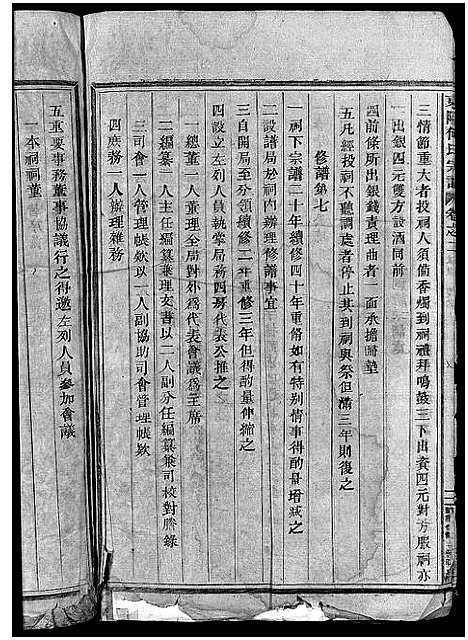 三情節重大者投祠人須備香燭到祠禮拜鳴鼓三下由出資四元對方服祠亦
出銀四元雙方設酒同前
四前條所出銀錢責理曲者一面承擔
五凡經投祠不聽調處者停止其到祠與祭但滿三年則復之
修譜第七
一祠下宗譜二十年續修四十年重脩如有特別情事得酌量增減之
二設譜局於祠內辦理修譜事宜
三自開局至分領續修二年重修三年但得酌量伸縮之
四設立左列人員執掌局務四房代表公推之
一總董一人董理全局對外爲代表會議爲主席
二編纂一人主任編纂兼理文書以二人副分任編纂兼司校對謄錄
三司會一人管理帳欵以一人副協助司會管理帳欵
四庶務一人辦理雜務
五重要事務董事協議行之得邀左列人員參加會議
一本祠祠董